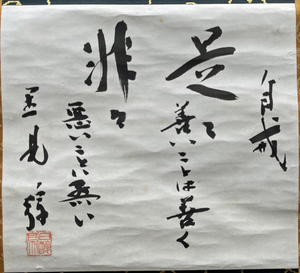 自戒
是々善いことは善く
非々悪いことは悪い